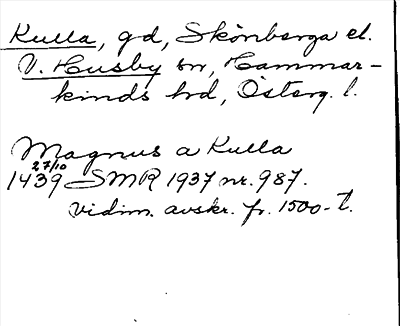 Kulla, gd, Skönberga el.
V. Husby sn, Hammar-
kinds hrd, Österg. l.
Magnus a Kulla
27/10
1439 SMR 1937 nr. 987.
Vidim. avskr. fr. 1500-t.